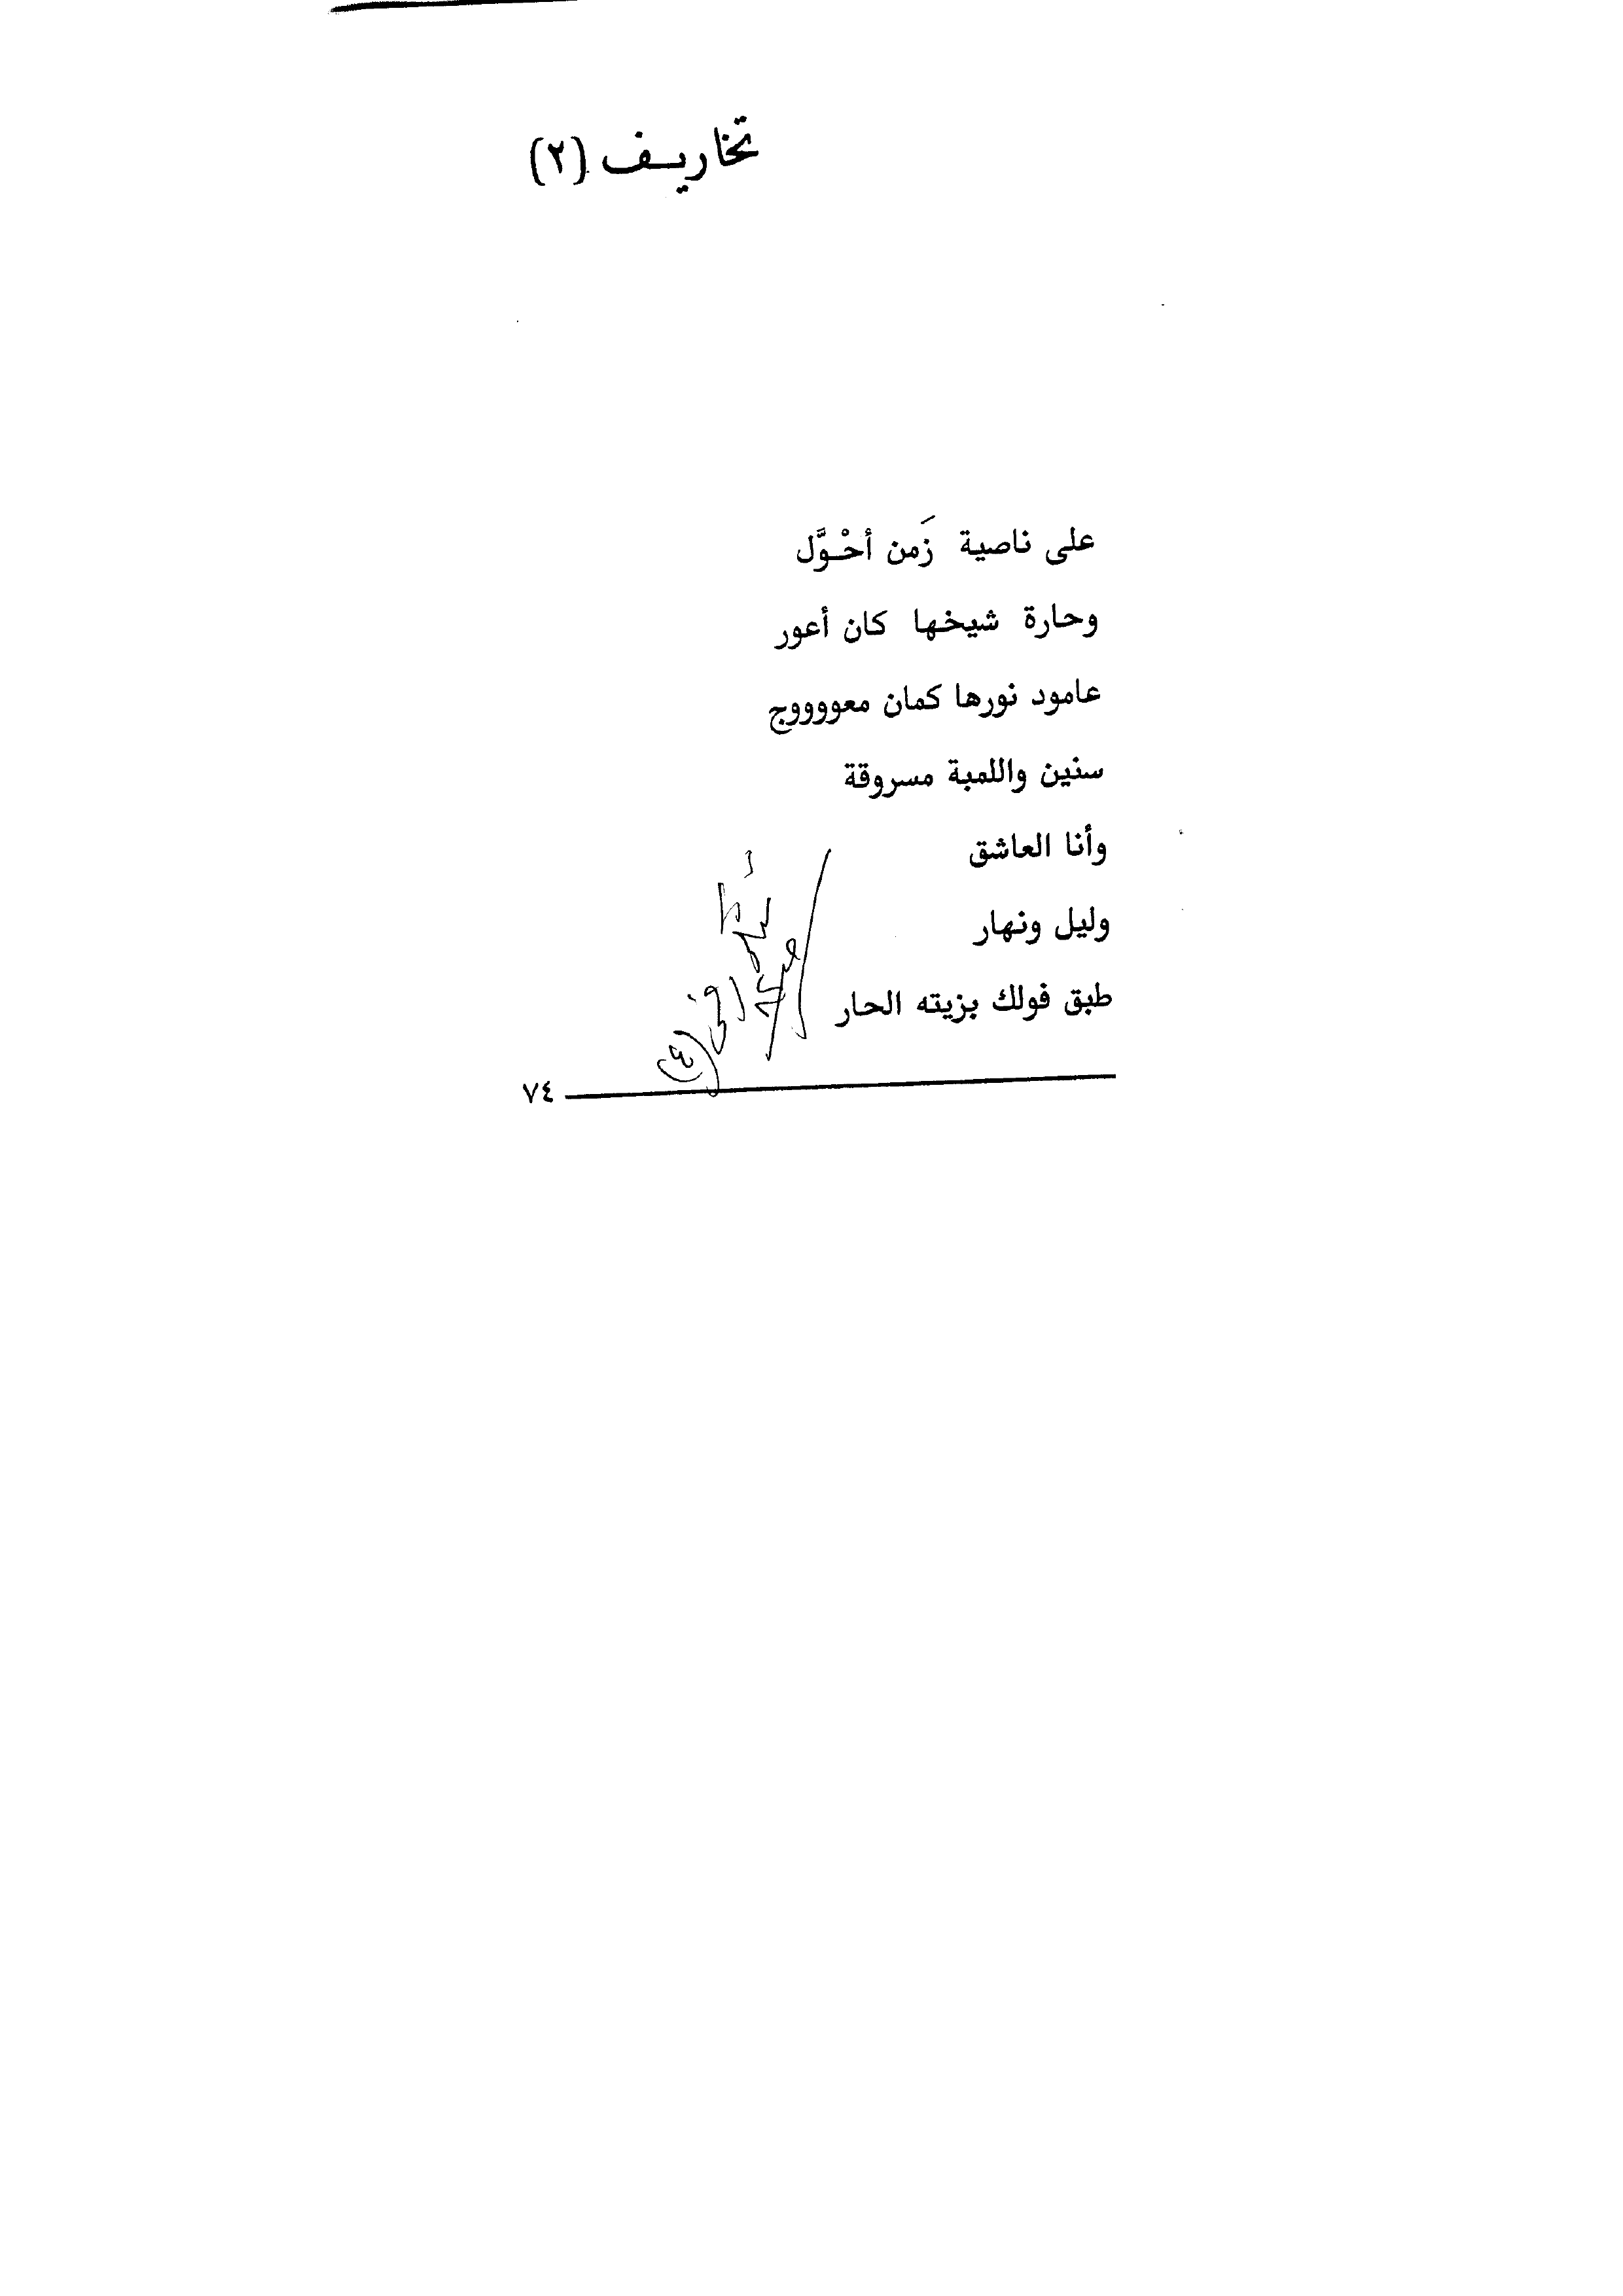 تخاريف (٢)
على ناصية زَمن أحْوَّل
وحارة شيخها كان أعور
عامود نورها كمان معووووج
سنين واللمبة مسروقة
وأنا العاشق
وليل ونهار
طبق فولك بزيته الحار
(٤)
٧٤